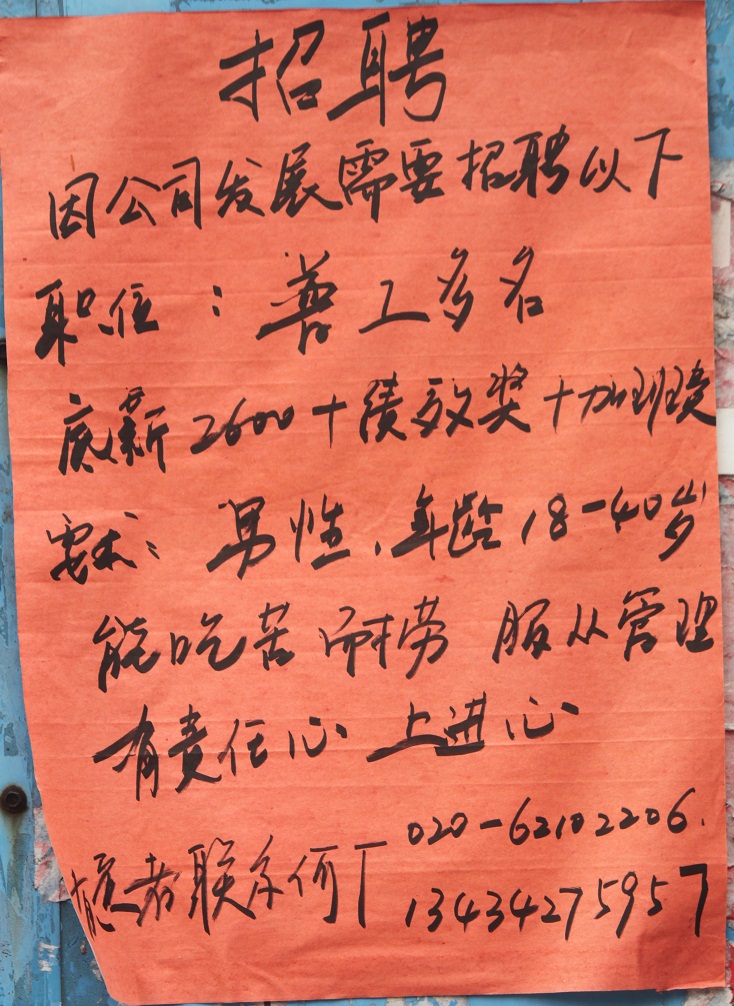 招聘
因公司发展需要招聘以下
职位：普工多名
底薪2600+绩效奖+加班费
要求：男性、年龄18-40岁
能吃苦耐劳 服从管理
有责任心 上进心
020-62102206.
者联系何 13434275957